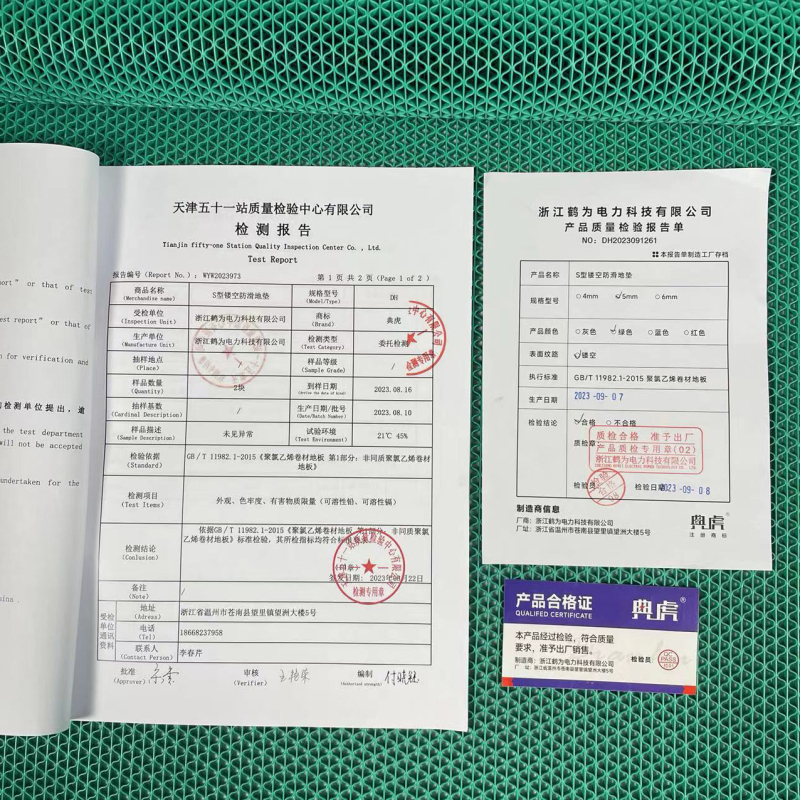 ort" or that of test
est report" or that of
n for verification and
检测单位提出，逾
the test department
will not be accepted
undertaken for the
hina .
天津五十一站质量检验中心有限公司
检 测 报 告
Tianjin fifty-one Station Quality Inspection Center Co., Ltd.
Test Report
报告编号（Report No.）：WYW2023973 第 1 页 共 2 页（Page 1 of 2 ）
商品名称 (Merchandise name) S型镂空防滑地垫 规格型号 (Model/Type) DH
受检单位 (Inspection Unit) 浙江鹤为电力科技有限公司 商标 (Brand) 典虎
生产单位 (Manufacture Unit) 浙江鹤为电力科技有限公司 检测类型 (Test Category) 委托检测
抽样地点 (Place) / 样品等级 (Sample Grade) /
样品数量 (Quantity) 2块 到样日期 2023.08.16
抽样基数 (Cardinal Description) / 生产日期/批号 (Date/Batch Number) 2023.08.10
样品描述 (Sample Description) 未见异常 试验环境 (Test Environment) 21℃ 45%
检验依据 (Standard) GB/T 11982.1-2015《聚氯乙烯卷材地板 第1部分：非同质聚氯乙烯卷材地板》
检测项目 (Test Items) 外观、色牢度、有害物质限量（可溶性铅、可溶性镉）
检测结论 (Conlusion) 依据GB/T 11982.1-2015《聚氯乙烯卷材地板 第1部分：非同质聚氯
乙烯卷材地板》标准检验，其所检指标均符合标准要求。
（印章）
签发日期： 2023年08月22日
检测专用章
备注 (Note) /
受检单位通讯资料
地址 (Adress) 浙江省温州市苍南县望里镇望洲大楼5号
电话 (Tel) 18668237958
联系人 (Contact Person) 李春芹
批准 (Approver) 审核 (Verifier) 编制
浙江鹤为电力科技有限公司
产品质量检验报告单
NO: DH2023091261
本报告单制造工厂存档
产品名称 S型镂空防滑地垫
规格型号 ○4mm ○5mm ○6mm
产品颜色 ○灰色 ○绿色 ○蓝色 ○红色
表面纹路 ○镂空
执行标准 GB/T 11982.1-2015 聚氯乙烯卷材地板
生产日期 2023 -09- 07
检验结论 ○合格 ○不合格
质检章
质检合格 准予出厂
产品质检专用章(02)
浙江鹤为电力科技有限公司
检验员 检验日期 2023 -09- 08
制造商信息
厂商：浙江鹤为电力科技有限公司
厂址：浙江省温州市苍南县望里镇望洲大楼5号
典虎
注册商标
产品合格证
QUALIFED CERTIFICATE
典虎
本产品经过检验，符合质量
要求，准予出厂销售。
制造商：浙江鹤为电力科技有限公司
厂 址：浙江省温州市苍南县望里镇望洲大楼5号
检验员
QC
PASS